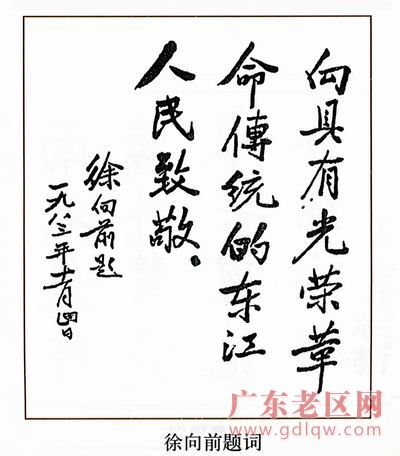 向具有光荣革
命傳统的东江
人民致敬。
徐向前题
一九八三年十一月四日
广东老区网
www.gdlqw.com
徐向前题词